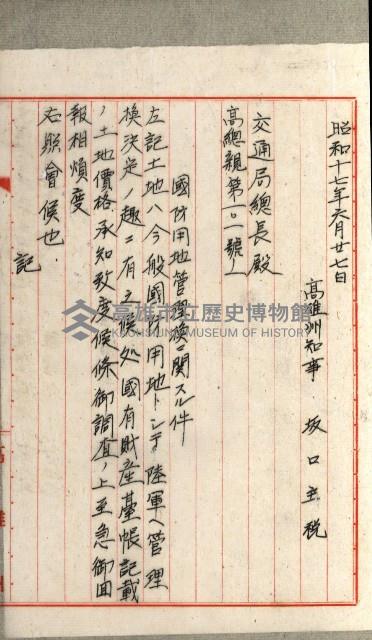 昭和十七年六月廿七日
高雄州知事 坂口主税
交通局總長殿
高總親第一〇一號ノ
國防用地管理換ニ関スル件
左記土地ハ今般國防用地トシテ陸軍ヘ管理
換決定ノ趣ニ有之候処國有財産臺帳記載
ノ土地價格承知致度候條御調査ノ上至急御回
報相煩度
右照會候也
記
高雄市立歷史博物館
KAOHSIUNG MUSEUM OF HISTORY